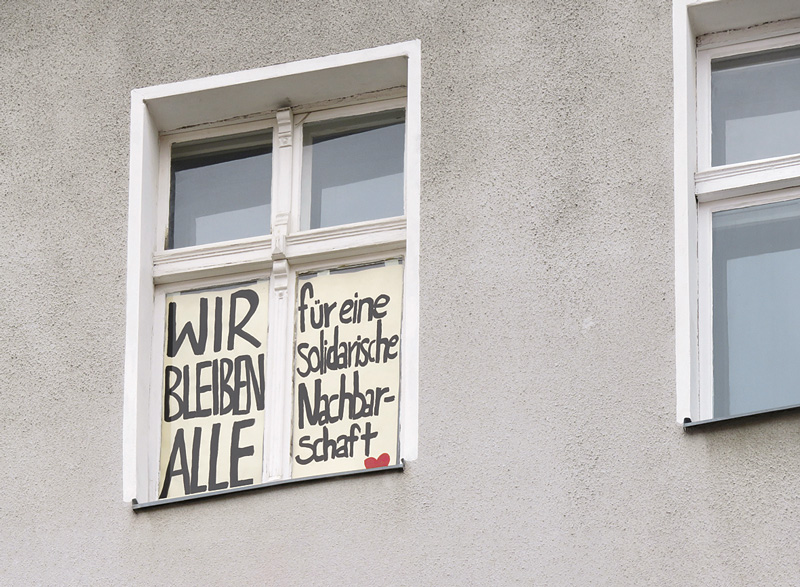 WIR
BLEIBEN
ALLE
für eine
solidarische
Nachbar-
schaft